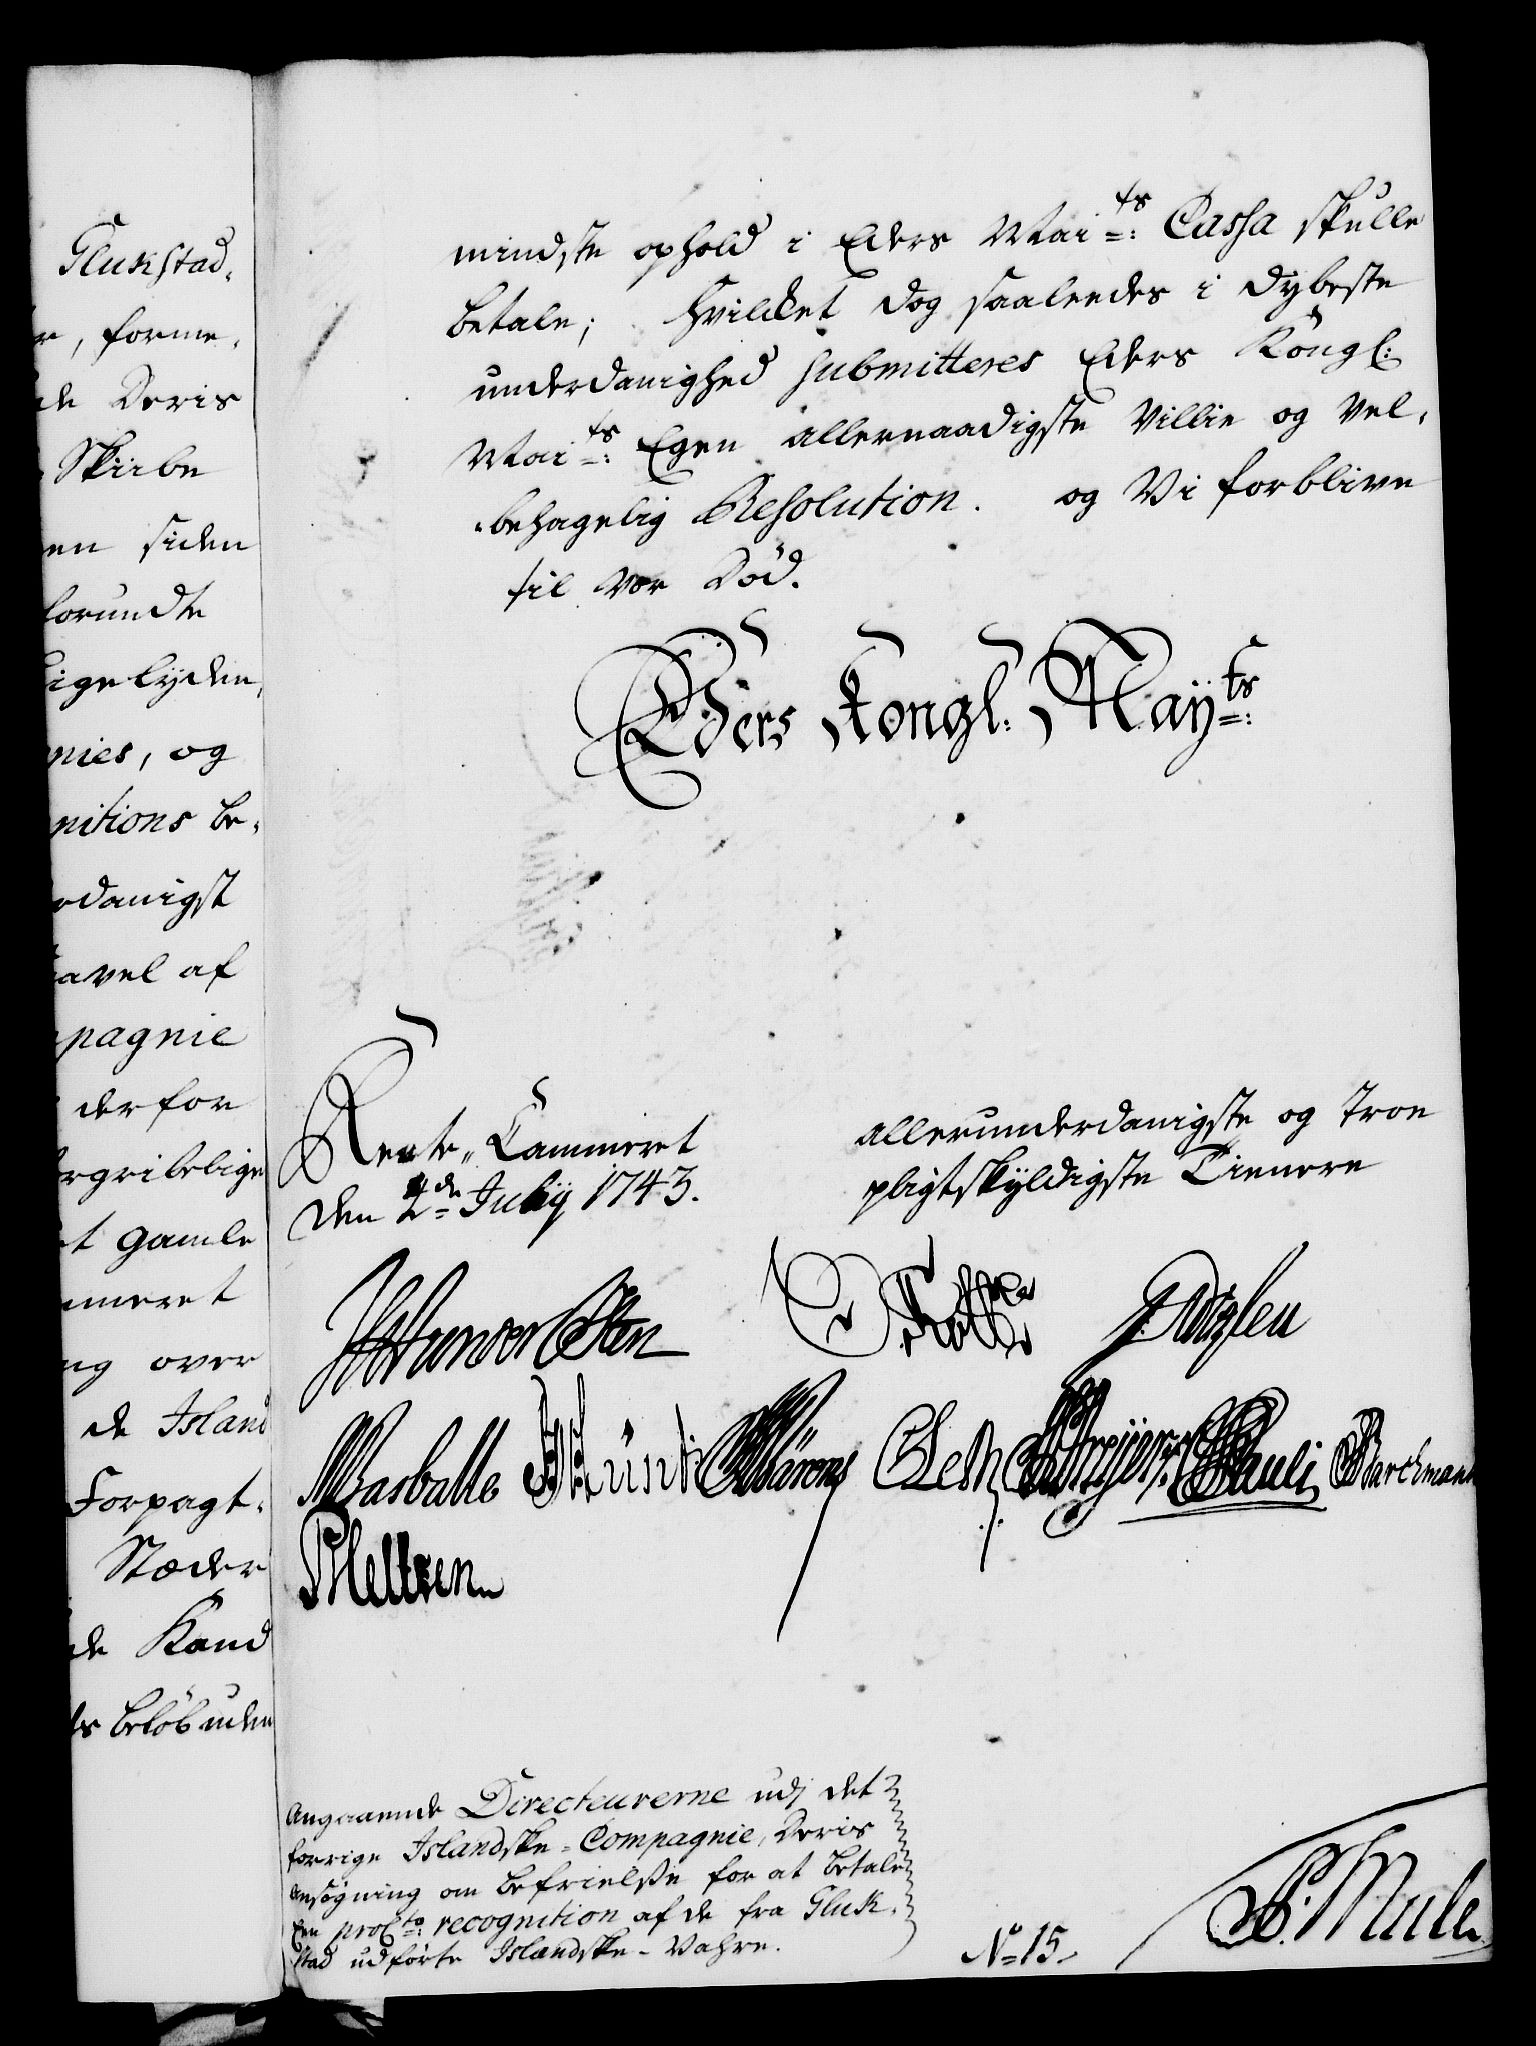 Glukstad,
r, forme,
de Deris
Skiibe
en siden
forundte
lige lyden,
nies, og
nitions be,
rdanigst
avel af
pagnie
derfor
rgribelige
t gamle
mmeret
ng over
de Island
Forpagt,
Stæder
de Kand
ds beløb uden
mindste ophold i Eders Maits: Cassa skulle
betale; hvilcket dog saaleedes i dybeste
underdanighed submitteres Eders Kongl:
Maits: Egen allernaadigste Villie og Vel,
behagelig Resolution. og Vi forblive
til Vor Død.
Eders Kongl: Mayts:
Rente,, Cammeret
den 2de July 1743.
allerunderdanigste og Troe
pligtskyldigste Tienere
Wasballe
Leth Pauli Barchmann
Angaaende Directeurerne udj det
forrige Islandske-Compagnie, Deris
Ansøgning om befrielse for at betale
Een proCto: recognition af de fra Gluk,
stad udførte Islandske-Vahre.
No 15.
P. Mule